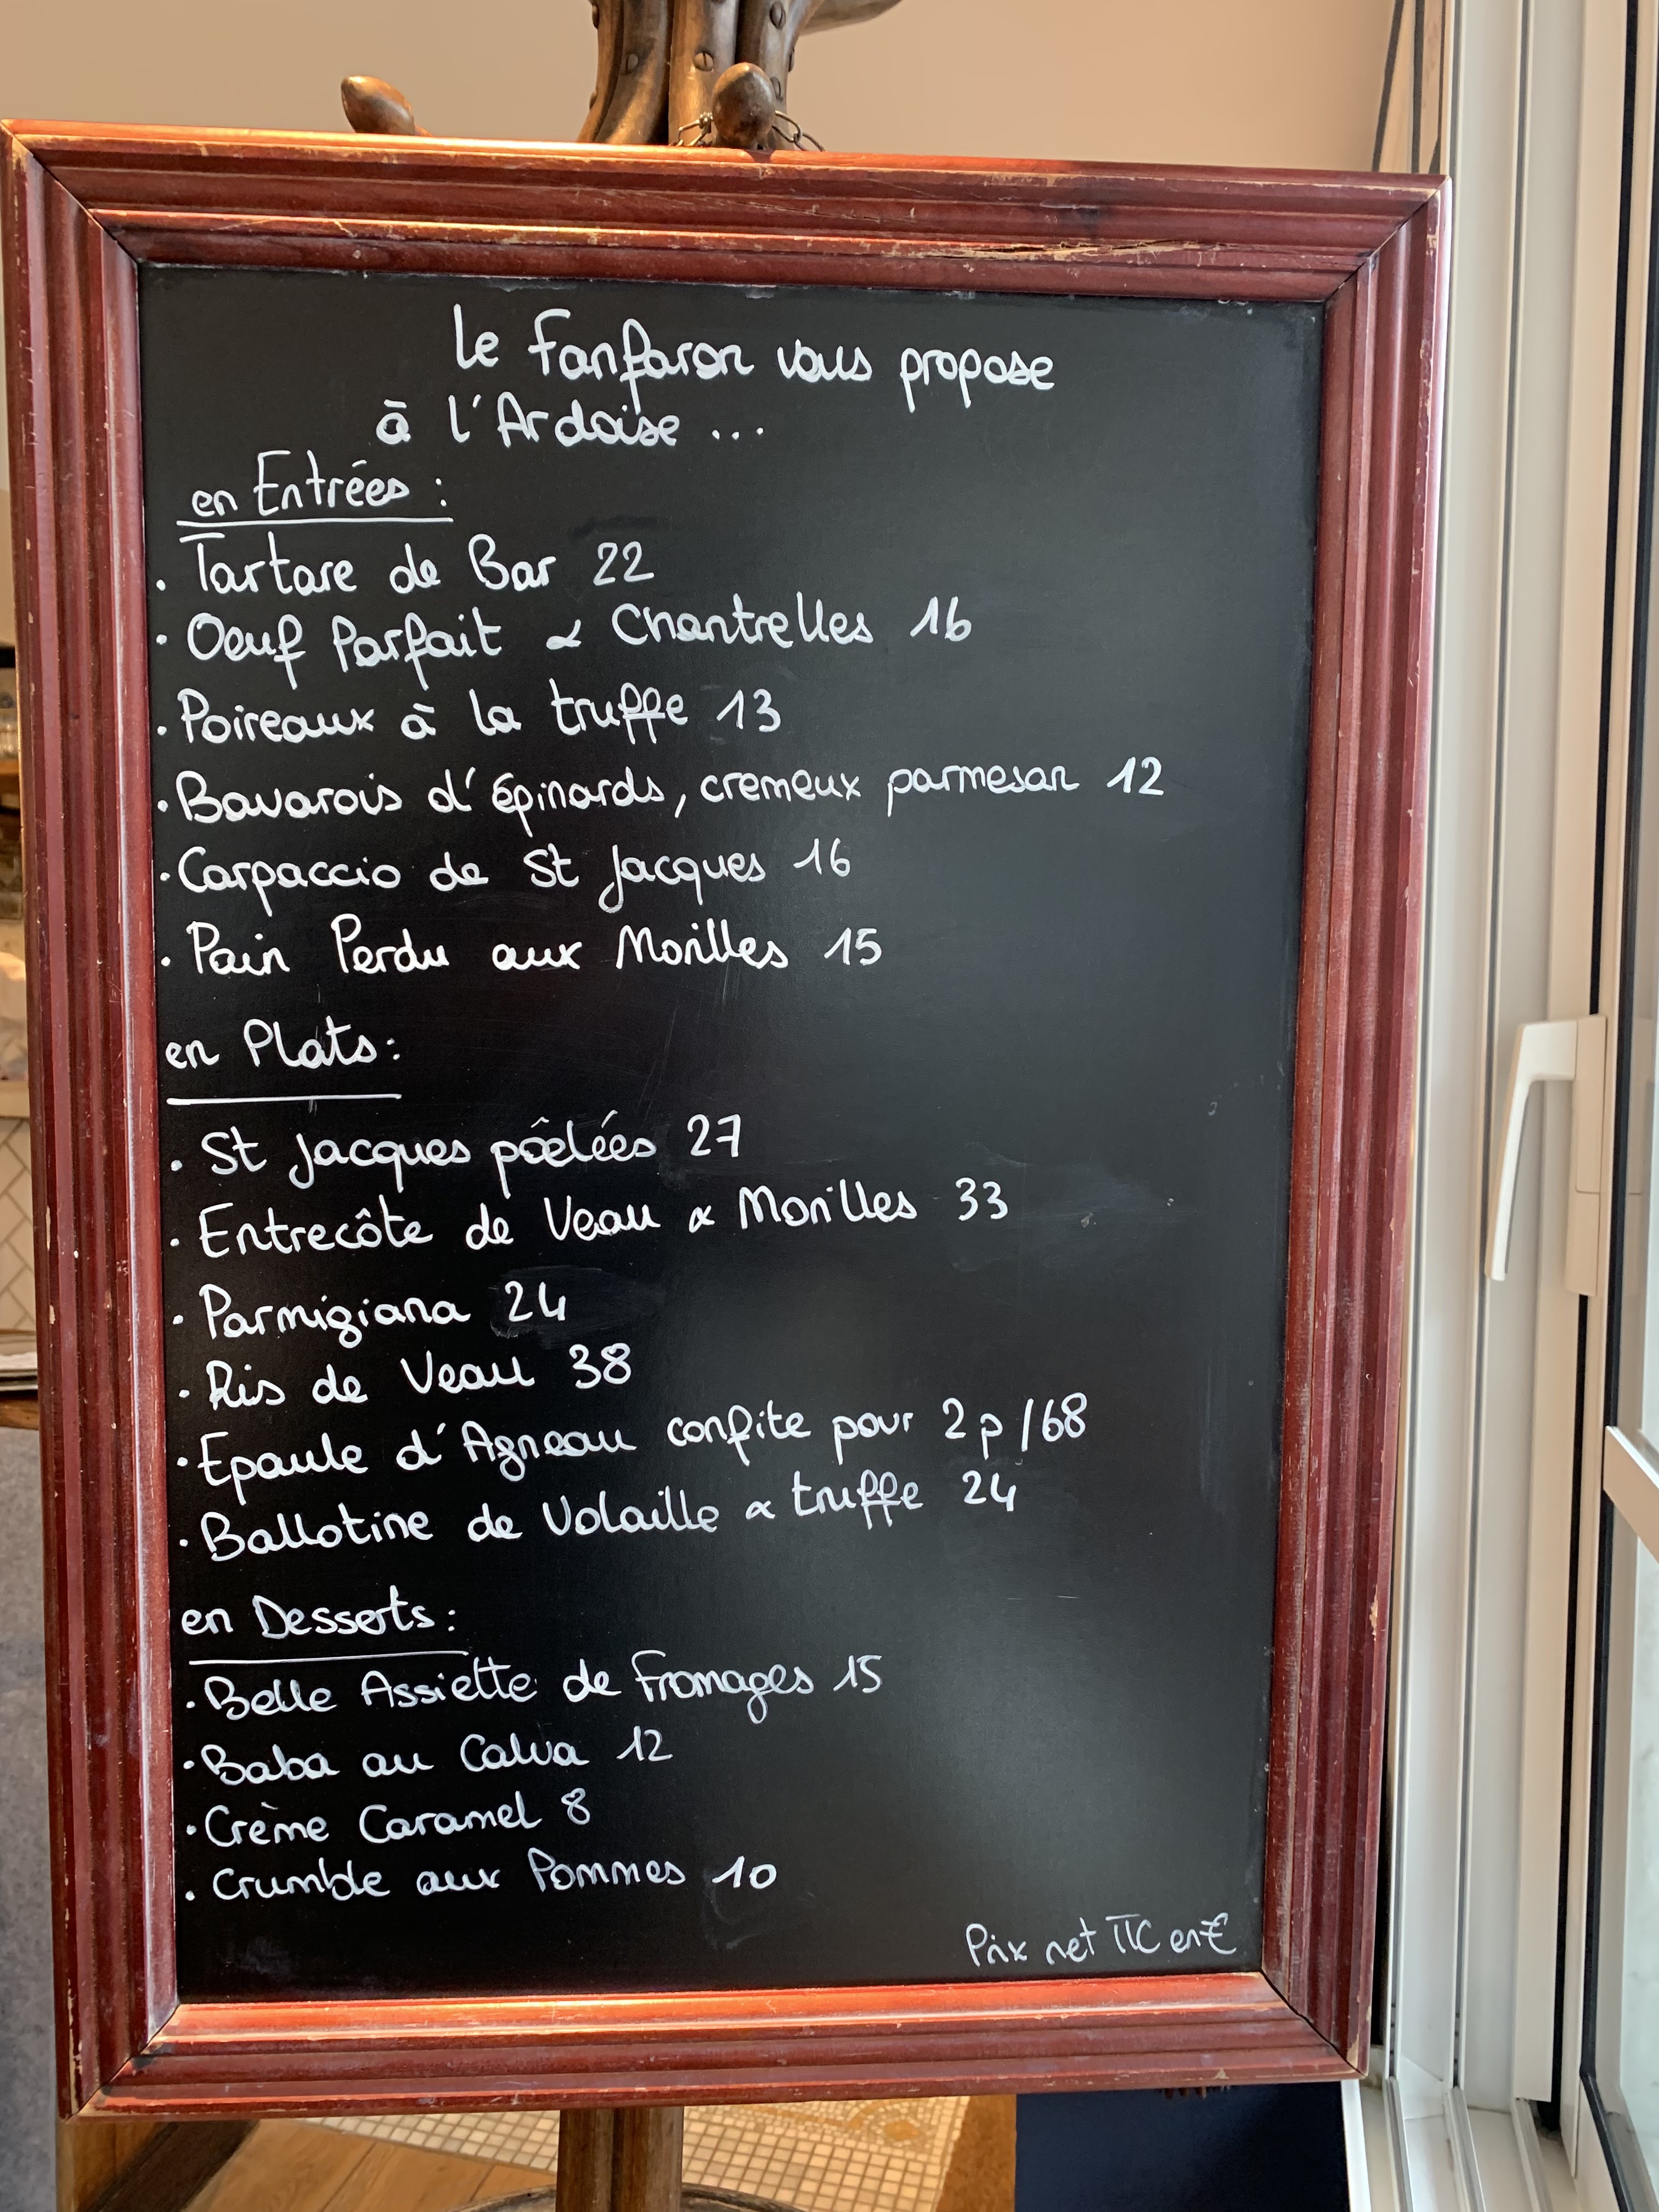 Le Fanfaron vous propose
à l'Ardoise ...
en Entrées :
. Tartare de Bar 22
. Oeuf Parfait & Chantrelles 16
. Poireaux à la truffe 13
. Bavarois d'épinards, cremeux parmesan 12
. Carpaccio de St Jacques 16
. Pain Perdu aux Morilles 15
en Plats :
. St Jacques pôelées 27
. Entrecôte de Veau & Morilles 33
. Parmigiana 24
. Ris de Veau 38
. Epaule d'Agneau confite pour 2p /68
. Ballotine de Volaille & truffe 24
en Desserts :
. Belle Assiette de Fromages 15
. Baba au Calva 12
. Crème Caramel 8
. Crumble aux Pommes 10
Prix net TTC en €